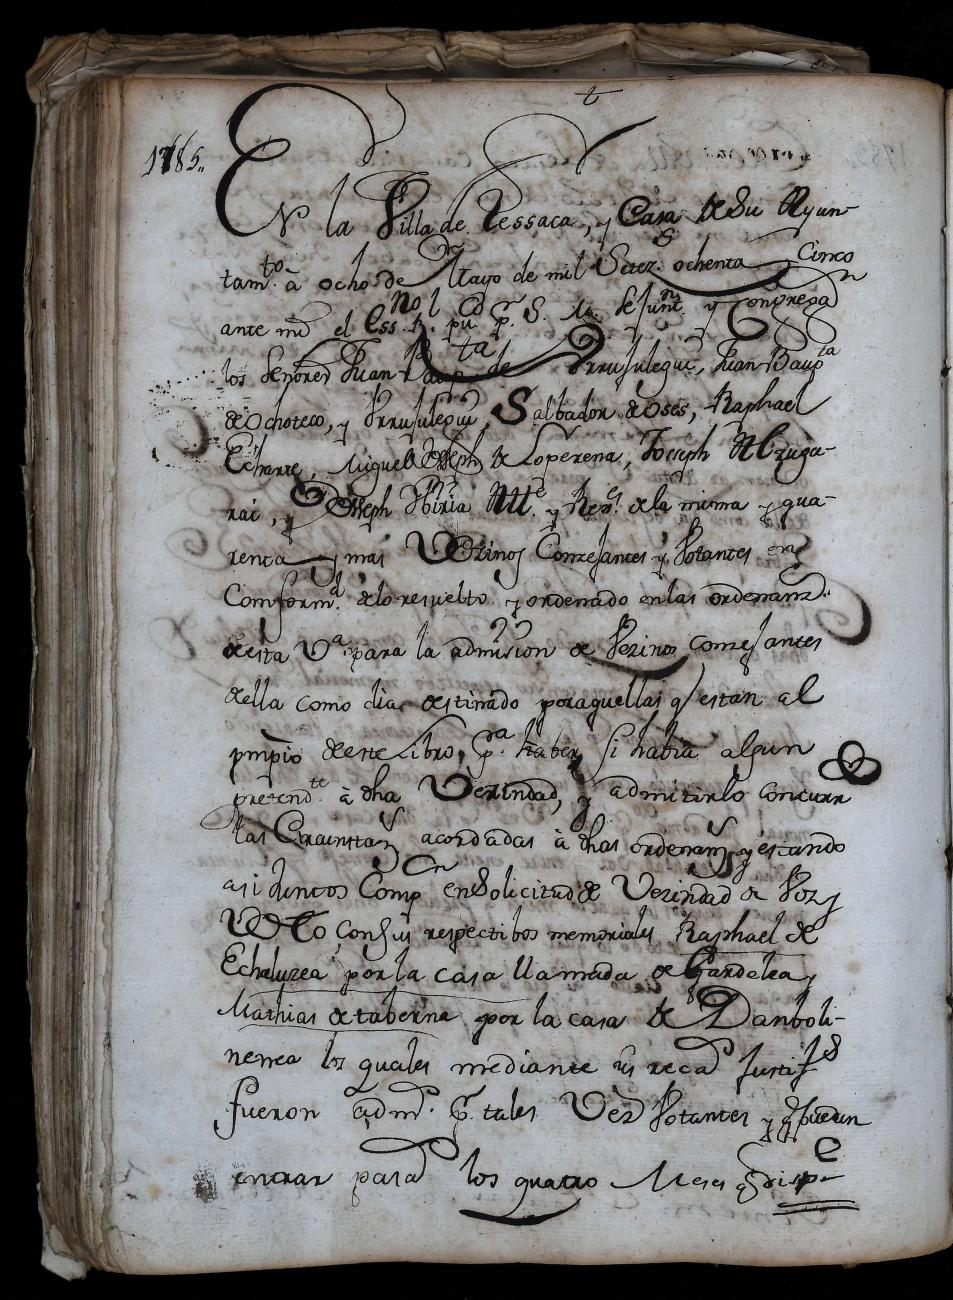 t
1785,,
En la Villa de Lessaca, y Casa de Su Ayun-
tamto. à ocho de Mayo de mil Setezs. ochenta y Cinco
ante mi el Essno. Rl. pu. Juntn. y Congregadn
los Señores Juan Bapta de Irrusulegui, Juan Bapta
de Ochoteco, y Irrusulegui, Salbador de Oses, Raphael
Echarte, Miguel Joseph de Loperena, Josseph Alzuga-
rai, y Josseph Ybiria Alle. y Rexs. de la misma y qua-
renta y mas Vezinos Conzejantes y Votantes en
Comformd. de lo resuelto y ordenado en las ordenanzs.
de esta Va. para la admision de Vezinos conzejantes
della como dia destinado por aquellas q/ estan al
prinpio de este Libro, pa. haber si habia algun
pretendte à dha Vezindad, y admitirlo concurr
las Circunstans acordadas à dhas ordenanzs y estando
asi Juntos Comp en Solicitud de Vezindad de Voz y
VOTo con sus respectibos memoriales Raphael de
Echaluzea por la casa llamada de Gardelea y
Mathias de taberna por la casa de Danboli-
nenea los quales mediante sus recads Justifs
fueron admds. pr. tales Vezs Votantes y q puedan
entrar pasads los quatro Meses q dispe